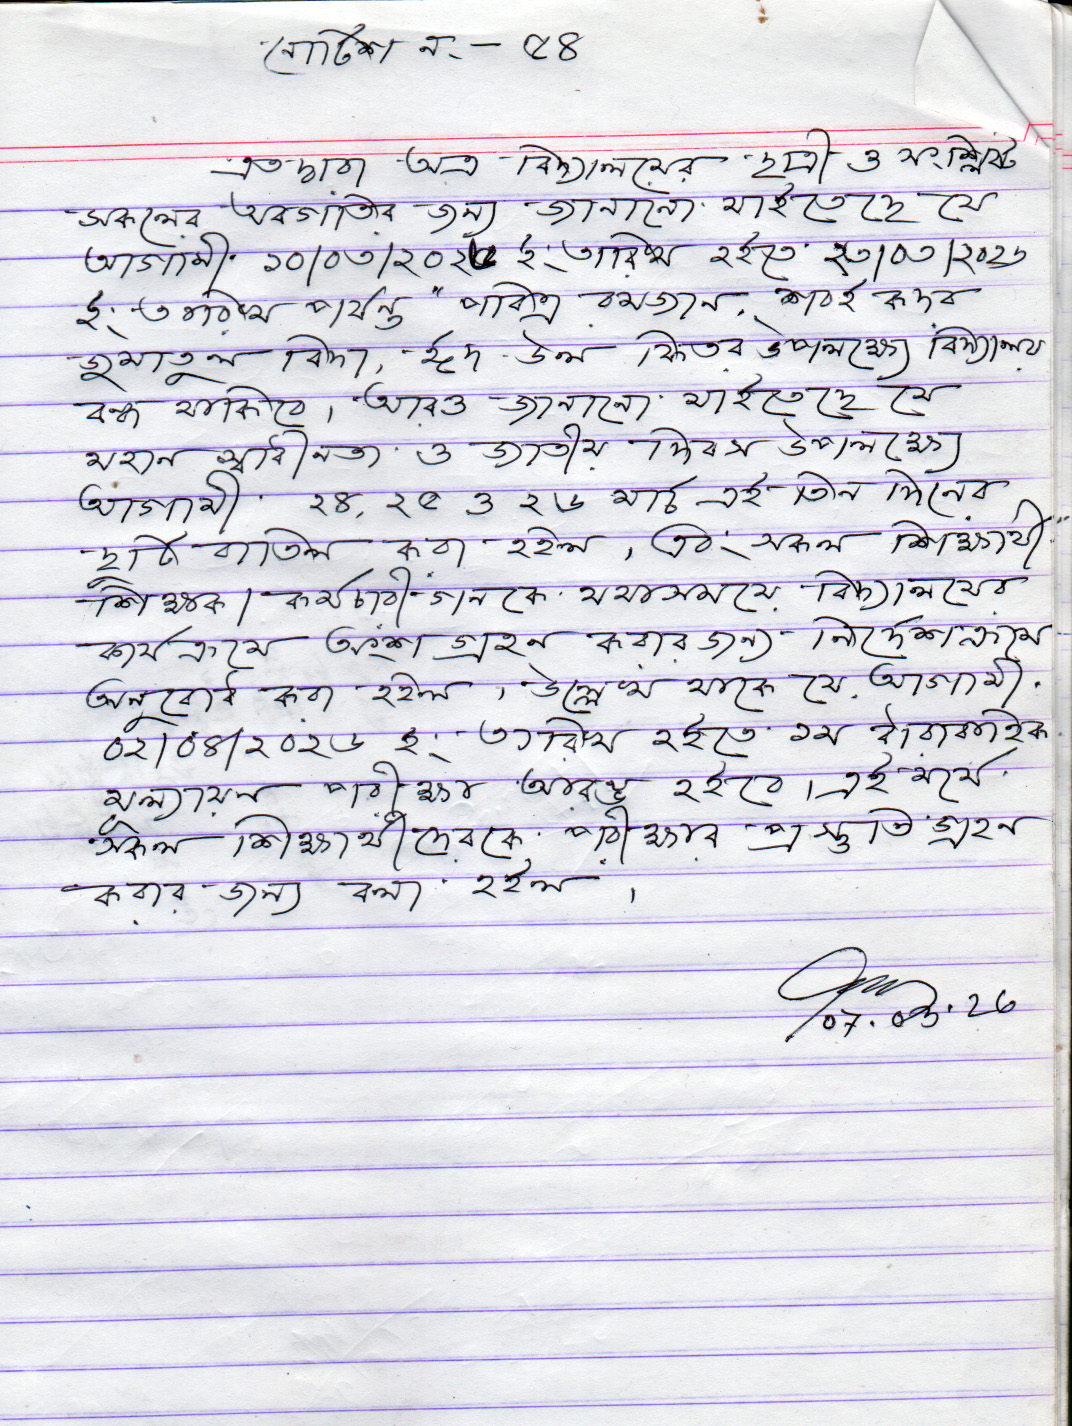 নোটিশ নং - ৫৪
এতদ্বারা অত্র বিদ্যালয়ের ছাত্রী ও সংশ্লিষ্ট
সকলের অবগতির জন্য জানানো যাইতেছে যে
আগামী ১০/০৩/২০২৬ ইং তারিখ হইতে ২৩/০৩/২০২৬
ইং তারিখ পর্যন্ত "পবিত্র রমজান, শবই কদর
জুমাতুল বিদা, ঈদ উল ফিতর উপলক্ষ্যে বিদ্যালয়
বন্ধ থাকিবে। আরও জানানো যাইতেছে যে
মহান স্বাধীনতা ও জাতীয় দিবস উপলক্ষ্যে
আগামী ২৪, ২৫ ও ২৬ মার্চ এই তিন দিনের
ছুটি বাতিল করা হইল, এবং সকল শিক্ষার্থী
শিক্ষক। কর্মচারীগনকে যথাসময়ে বিদ্যালয়ের
কার্যক্রমে অংশ গ্রহন করার জন্য নির্দেশক্রমে
অনুরোধ করা হইল। উল্লেখ থাকে যে আগামী
০২/০৪/২০২৬ ইং তারিখ হইতে ১ম ধারাবাহিক
মূল্যায়ন পরীক্ষা আরম্ভ হইবে। এই মর্মে
সকল শিক্ষার্থীদেরকে পরীক্ষার প্রস্তুতি গ্রহন
করার জন্য বলা হইল।
০৭.০৩.২৬